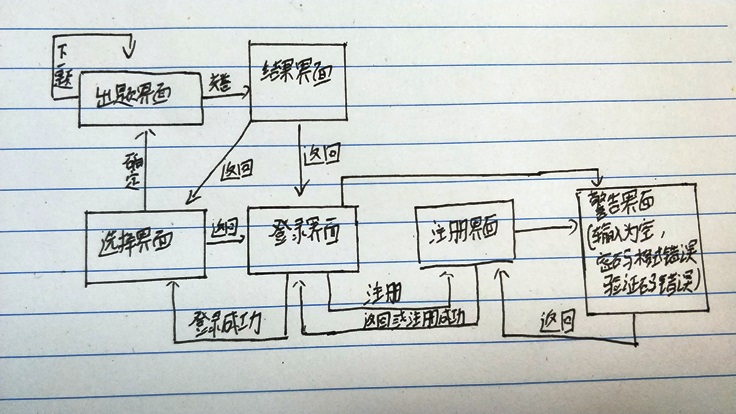 下一题
出题界面
结果界面
确定
返回
返回
选择界面
返回
登录界面
注册界面
警告界面
(输入为空,
密码格式错误
验证码错误)
登录成功
注册
返回或注册成功
返回